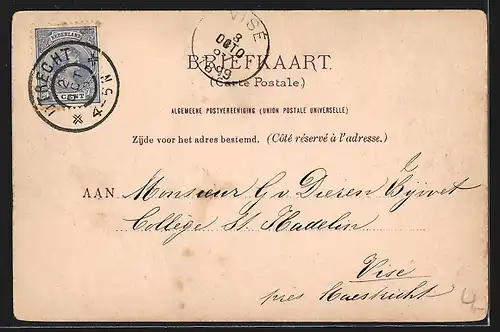 NEDERLAND
CENT
UTRECHT
2 OCT
4-5N
VISÉ
3
OCTO
1899
BRIEFKAART.
(Carte Postale.)
ALGEMEENE POSTVEREENIGING (UNION POSTALE UNIVERSELLE)
Zijde voor het adres bestemd. (Côté réservé à l'adresse.)
AAN Monsieur G v Dieren Bijvoet
Collège St. Hadelin
Visé
près Maestricht